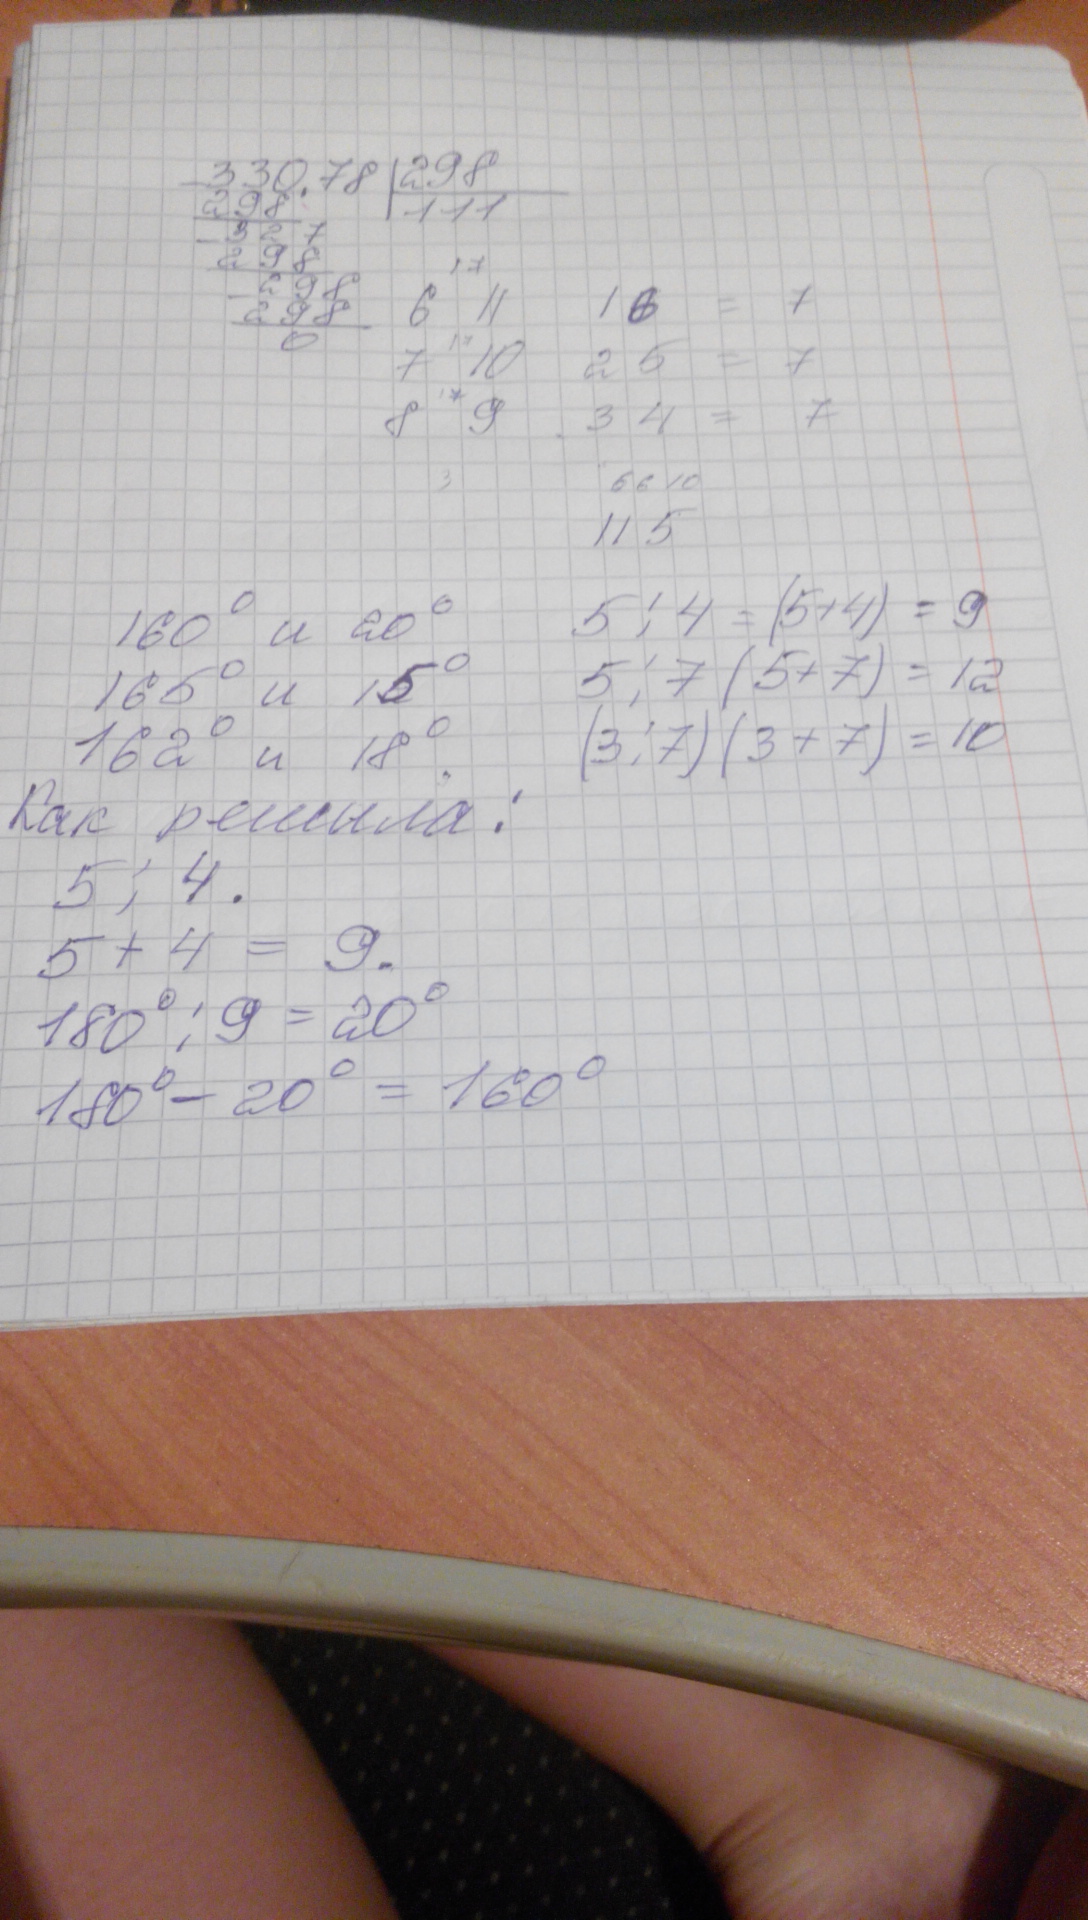 330.78 298
298 111
327
298
298
298
0
17
6 11 16 = 7
17
7 10 25 = 7
17
8 9 34 = 7
3 6 6 10
11 5
160° и 20° 5:4 = (5+4) = 9
165° и 15° 5:7 (5+7) = 12
162° и 18°. (3:7) (3+7) = 10
Как решила:
5:4.
5+4 = 9.
180°:9 = 20°
180° - 20° = 160°